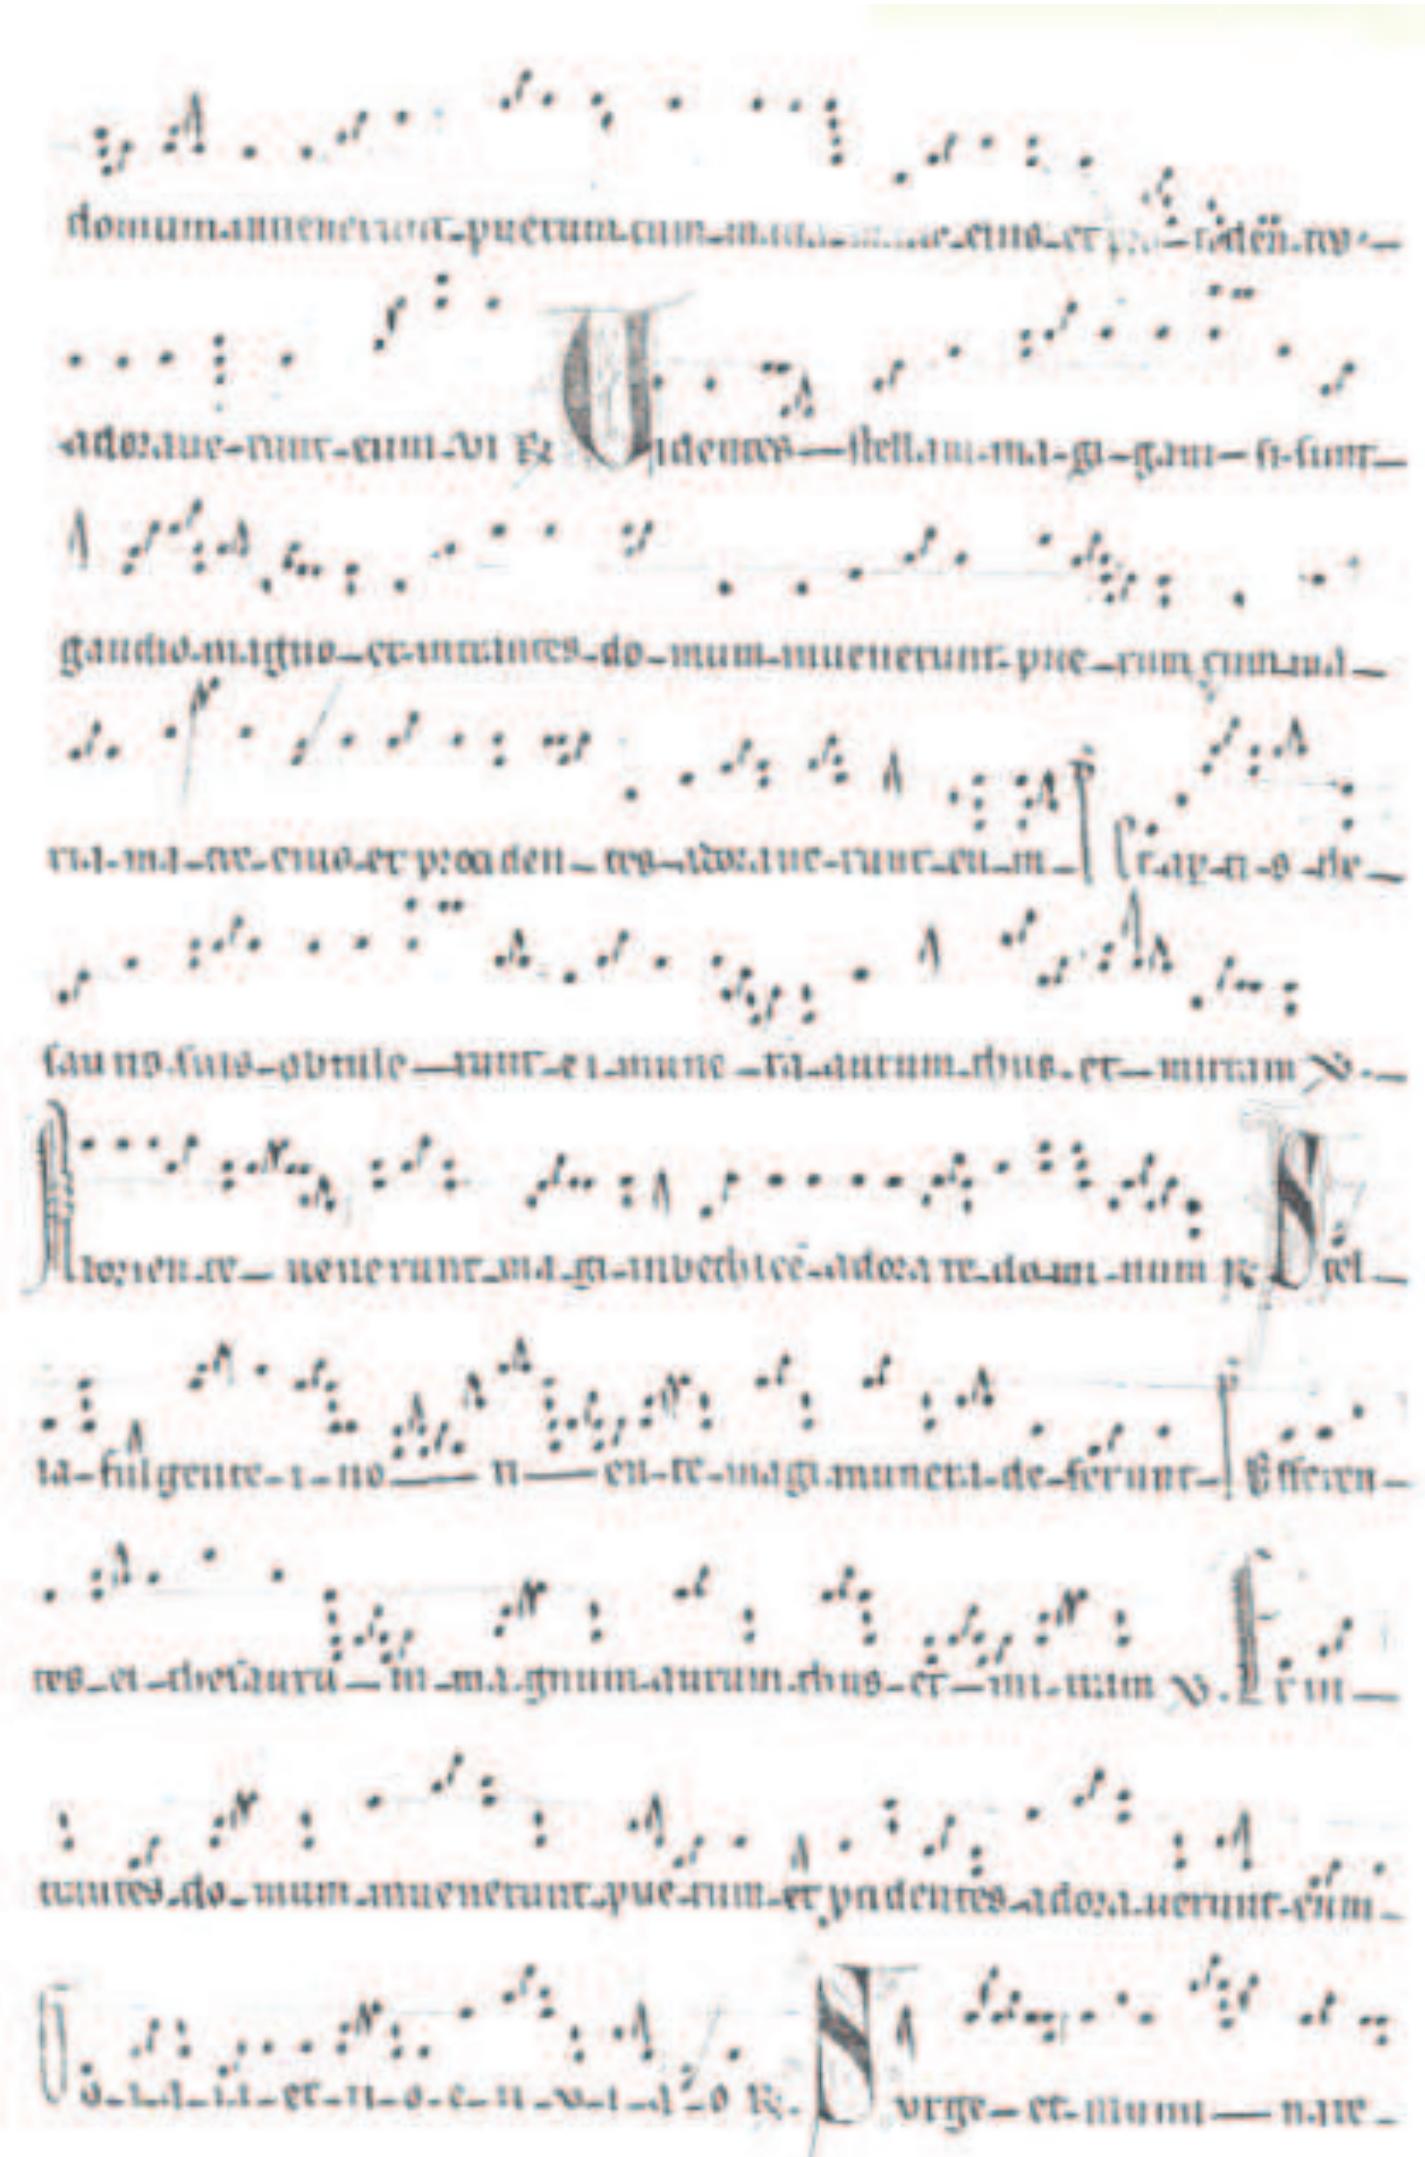 domum inuenerunt puerum cum eius et
adoraue-runt-eum. vi R Videntes stellam ma-gi-gaui-si-sunt
gaudio magno-et-intrantes-do-mum-inuenerunt-pue-rum cum ma-
ria-ma-tre-eius-et prociden-tes-adoraue-runt-eu-m Et ap-ti-s de-
sauris suis-obtule-runt-ei-mune-ra-aurum-thus-et-mirram V.
Ab orien-te-uenerunt-ma-gi-in bethleē-adora re-do-mi-num R Stel-
la-fulgente-i-no n en-te-magi munera-de-ferunt- Efferen-
tes-ei-thesauru-m-ma-gnum-aurum-thus-et-mi-rram V. Et in-
trantes-do-mum-inuenerunt-pue-rum-et pcidentes-adora-uerunt-eum
G o-i-a-i-i-et-ii-o-e-ii-v-i-a-o R. Surge-et-illumi-nare-